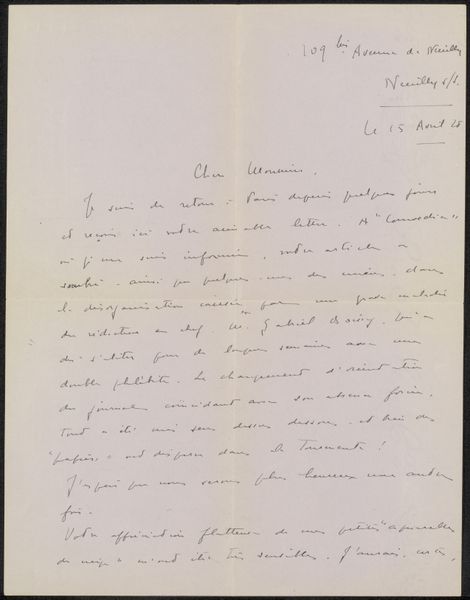 109 bis Avenue de Neuilly
Neuilly s/s.
Le 15 Avril 28
Cher Monsieur,
Je suis de retour à Paris depuis quelques jours
et reçois ici votre aimable lettre. A "Comoedia"
où je me suis informé, votre article a
sombré, ainsi que quelques-uns des miens, dans
la désorganisation causée par une grave maladie
du rédacteur en chef, Mr Gabriel Boissy, qui a
dû s'aliter pour de longues semaines avec une
double phlébite. Le changement d'orientation
du journal coïncidant avec son absence forcée,
tout a été mis sens dessus dessous, et bien des
"papiers" ont disparu dans la tourmente!
J'espère que nous serons plus heureux une autre
fois.
Votre appréciation flatteuse de mes petites "aquarelles
de neige" m'ont été très sensibles. J'aurais, certes,